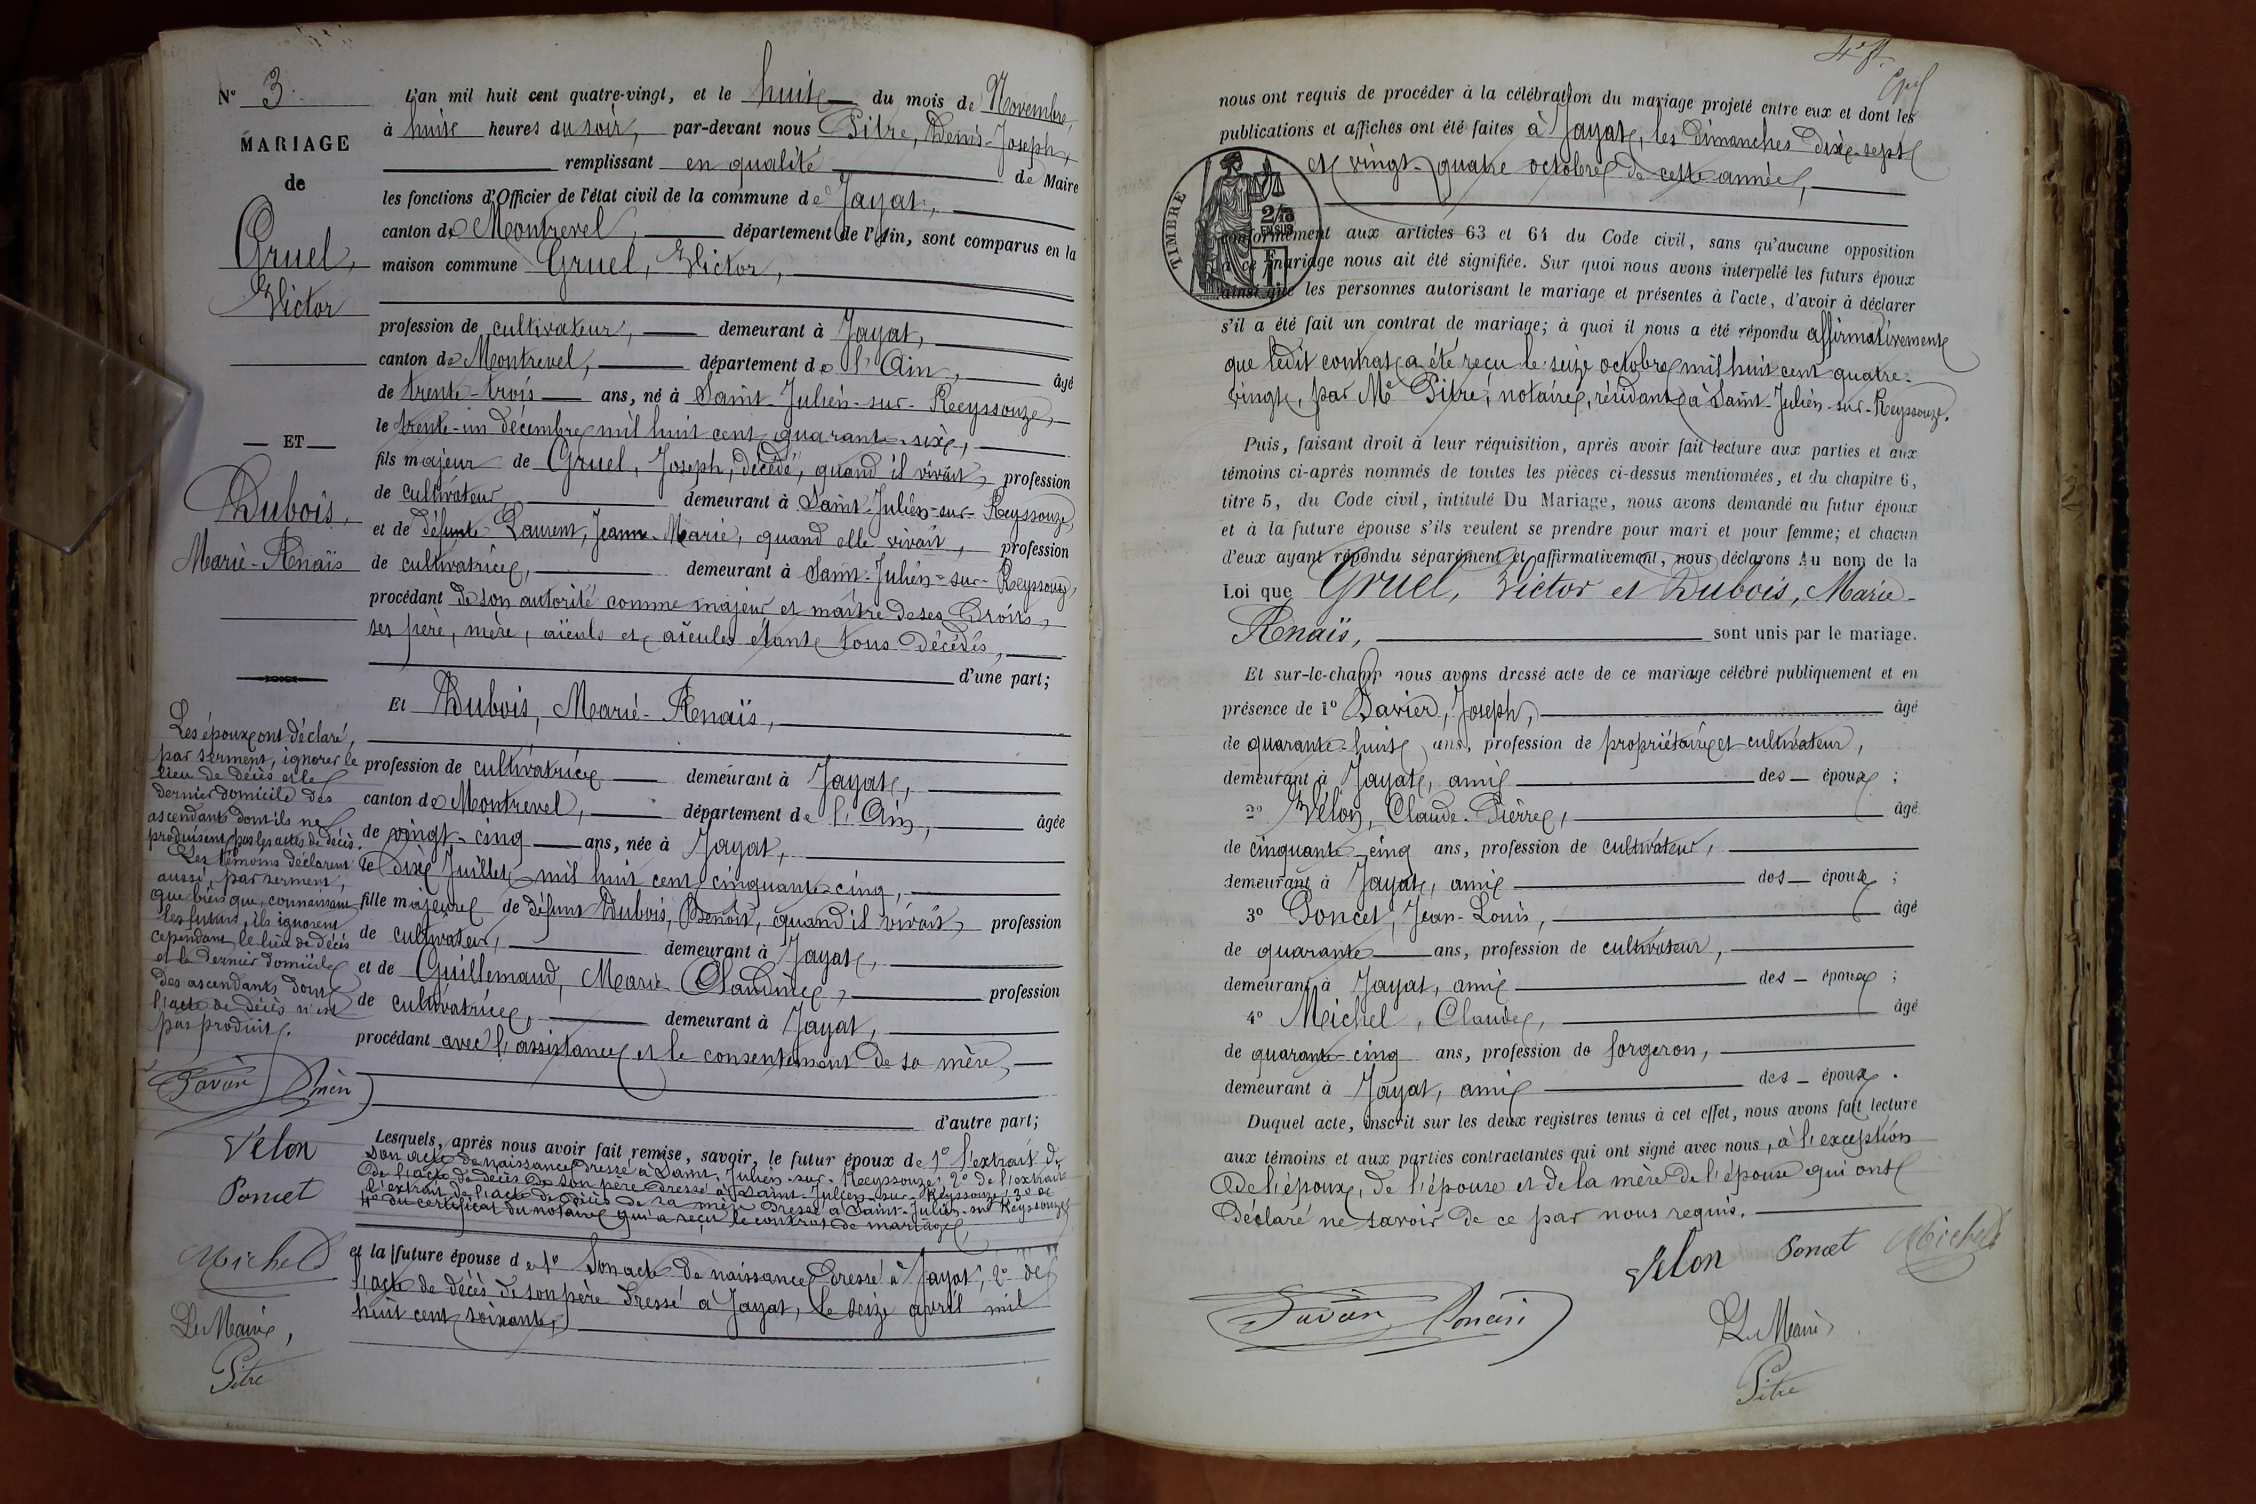 N° 3.
MARIAGE
de
Gruel,
Victor
ET
Dubois,
Marie-Anaïs
Les époux ont déclaré,
par serment, ignorer le
lieu de décès et le
dernier domicile des
ascendants dont ils ne
produisent pas les actes de décès.
Les témoins déclarent
aussi, par serment,
que bien que, connaissant
les futurs, ils ignorent
cependant le lieu de décès
et le dernier domicile
des ascendants dont
l'acte de décès n'est
pas produit.
Velon
Poncet
Michel
Le Maire,
Pitre
L'an mil huit cent quatre-vingt, et le huit du mois de Novembre,
à huit heures du soir, par-devant nous Pitre, Denis-Joseph,
remplissant en qualité de Maire
les fonctions d'Officier de l'état civil de la commune de Jayat,
canton de Montrevel, département de l'Ain, sont comparus en la
maison commune Gruel, Victor,
profession de cultivateur, demeurant à Jayat,
canton de Montrevel, département de l'Ain, âgé
de trente-trois ans, né à Saint-Julien-sur-Reyssouze,
le trente-un décembre mil huit cent quarante-six,
fils majeur de Gruel, Joseph, décédé, quand il vivait, profession
de cultivateur demeurant à Saint-Julien-sur-Reyssouze,
et de défunte Laurent, Jeanne-Marie, quand elle vivait, profession
de cultivatrice, demeurant à Saint-Julien-sur-Reyssouze,
procédant de son autorité comme majeur et maître de ses droits,
ses père, mère, aïeuls et aïeules étant tous décédés,
d'une part;
Et Dubois, Marie-Anaïs,
profession de cultivatrice demeurant à Jayat,
canton de Montrevel, département de l'Ain, âgée
de vingt-cinq ans, née à Jayat,
le dix Juillet mil huit cent cinquante-cinq,
fille majeure de défunt Dubois, Benoît, quand il vivait, profession
de cultivateur, demeurant à Jayat,
et de Guillemaud, Marie Claudine, profession
de cultivatrice, demeurant à Jayat,
procédant avec l'assistance et le consentement de sa mère,
d'autre part;
Lesquels, après nous avoir fait remise, savoir, le futur époux de 1° l'extrait de
son acte de naissance dressé à Saint-Julien-sur-Reyssouze, 2° de l'extrait
de l'acte de décès de son père dressé à Saint-Julien-sur-Reyssouze, 3° de
l'extrait de l'acte de décès de sa mère dressé à Saint-Julien-sur-Reyssouze
4° du certificat du notaire qui a reçu le contrat de mariage,
et la future épouse de 1° son acte de naissance dressé à Jayat, 2° de
l'acte de décès de son père dressé à Jayat, le seize avril mil
huit cent soixante,
nous ont requis de procéder à la célébration du mariage projeté entre eux et dont les
publications et affiches ont été faites à Jayat, les dimanches dix-sept
et vingt-quatre octobre de cette année,
TIMBRE
2/10
EN SUS
conformément aux articles 63 et 64 du Code civil, sans qu'aucune opposition
à ce mariage nous ait été signifiée. Sur quoi nous avons interpellé les futurs époux
ainsi que les personnes autorisant le mariage et présentes à l'acte, d'avoir à déclarer
s'il a été fait un contrat de mariage; à quoi il nous a été répondu affirmativement
que ledit contrat a été reçu le seize octobre mil huit cent quatre-
vingt, par Me Pitre, notaire, résidant à Saint-Julien-sur-Reyssouze.
Puis, faisant droit à leur réquisition, après avoir fait lecture aux parties et aux
témoins ci-après nommés de toutes les pièces ci-dessus mentionnées, et du chapitre 6,
titre 5, du Code civil, intitulé Du Mariage, nous avons demandé au futur époux
et à la future épouse s'ils veulent se prendre pour mari et pour femme; et chacun
d'eux ayant répondu séparément et affirmativement, nous déclarons Au nom de la
Loi que Gruel, Victor et Dubois, Marie-
Anaïs, sont unis par le mariage.
Et sur-le-champ nous avons dressé acte de ce mariage célébré publiquement et en
présence de 1° Savier, Joseph, âgé
de quarante-huit ans, profession de propriétaire et cultivateur,
demeurant à Jayat, ami des époux;
2° Velon, Claude-Pierre, âgé
de cinquante-cinq ans, profession de cultivateur,
demeurant à Jayat, ami des époux;
3° Poncet, Jean-Louis, âgé
de quarante ans, profession de cultivateur,
demeurant à Jayat, ami des époux;
4° Michel, Claude, âgé
de quarante-cinq ans, profession de forgeron,
demeurant à Jayat, ami des époux.
Duquel acte, inscrit sur les deux registres tenus à cet effet, nous avons fait lecture
aux témoins et aux parties contractantes qui ont signé avec nous, à l'exception
de l'époux, de l'épouse et de la mère de l'épouse qui ont
déclaré ne savoir de ce par nous requis.
Velon Poncet Michel
Le Maire,
Pitre